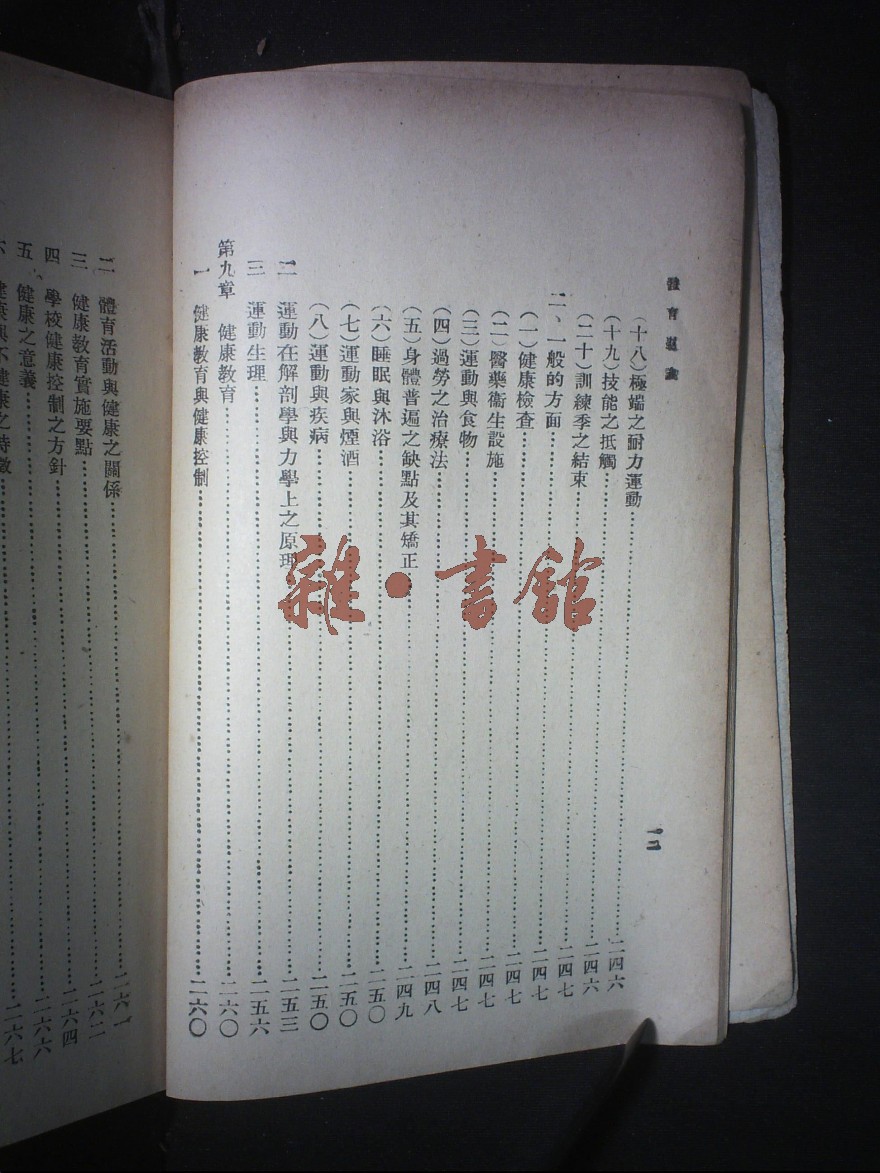 體育導論
一二
(十八)極端之耐力運動……二四六
(十九)技能之抵觸……二四六
(二十)訓練季之結束……二四七
二、一般的方面……二四七
(一)健康檢查……二四七
(二)醫藥衞生設施……二四七
(三)運動與食物……二四七
(四)過勞之治療法……二四八
(五)身體普遍之缺點及其矯正……二四九
(六)睡眠與沐浴……二五〇
(七)運動家與煙酒……二五〇
(八)運動與疾病……二五〇
二 運動在解剖學與力學上之原理……二五三
三 運動生理……二五六
第九章 健康教育……二六〇
一 健康教育與健康控制……二六〇
二 體育活動與健康之關係……二六一
三 健康教育實施要點……二六二
四 學校健康控制之方針……二六四
五 健康之意義……二六六
六 健康與不健康之特徵……二六七
雜·書館